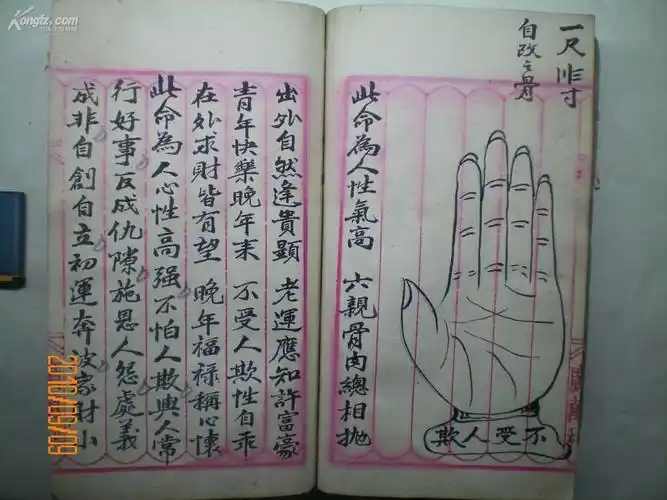 一尺 寸
自改之骨
不受人欺
此命為人性氣高 六親骨肉總相拋
出外自然逢貴顯 老運應知許富豪
青年快樂晚年末 不受人欺性自乖
在外求財皆有望 晚年福祿稱心懷
此命為人心性高强不怕人欺與人常
行好事反成仇隙施恩人怨處義
成非自創自立初運奔波家財小
Kongfz.com
2010/09/09